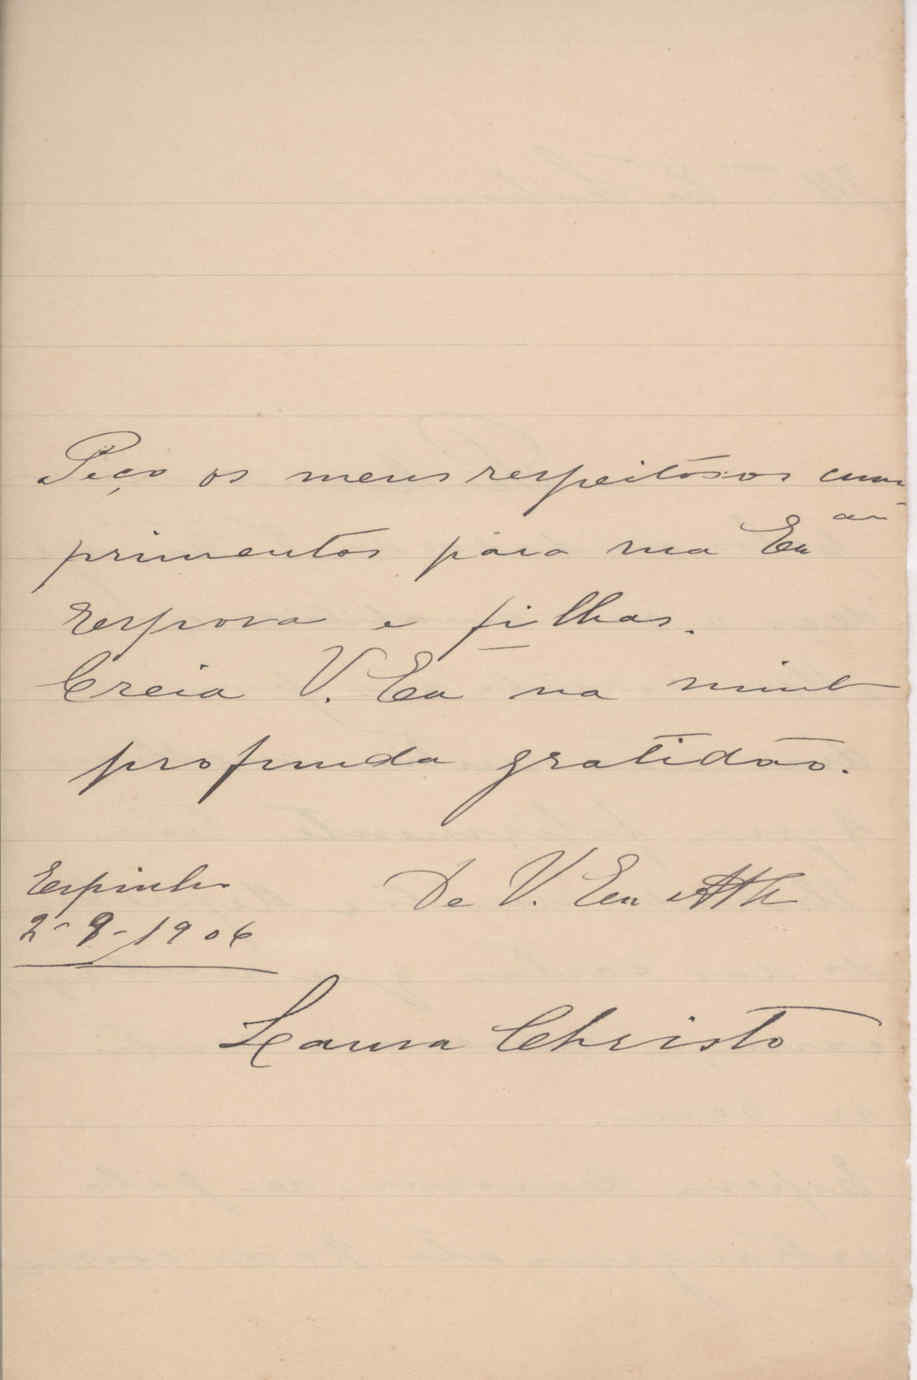 Peço os meus respeitosos cum
primentos para sua Exᵐᵃ
Esposa e filhas.
Creia V. Exª na minh
profunda gratidão.
Espinho
2-9-1906
De V. Exª Attª
Laura Christo